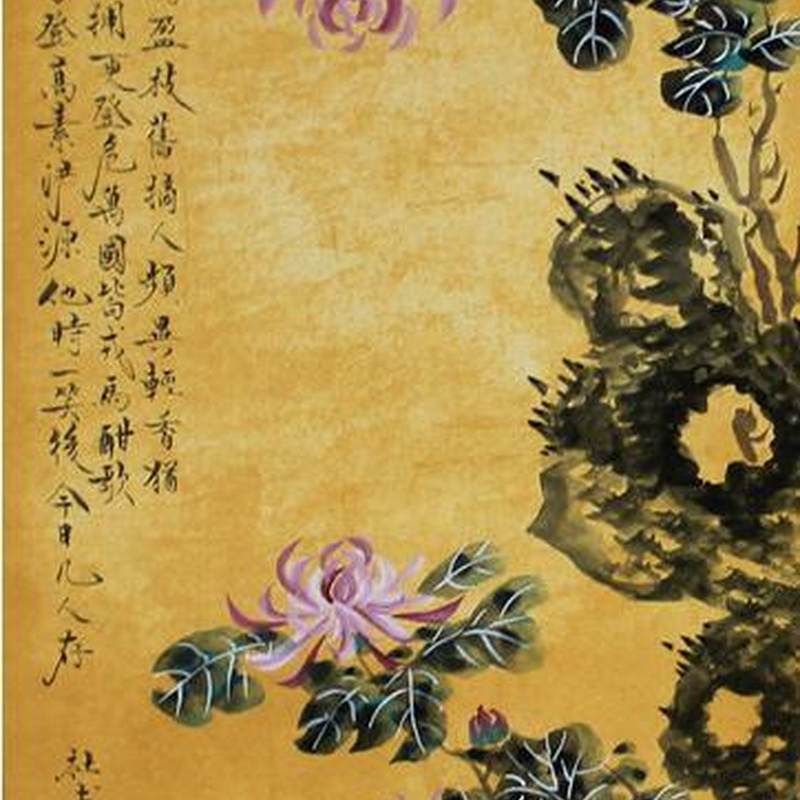 盈枝舊摘人頻異輕香猶
擁更登危萬國皆戎馬酣歌
登高素浐源他時一笑後今日几人存
杜